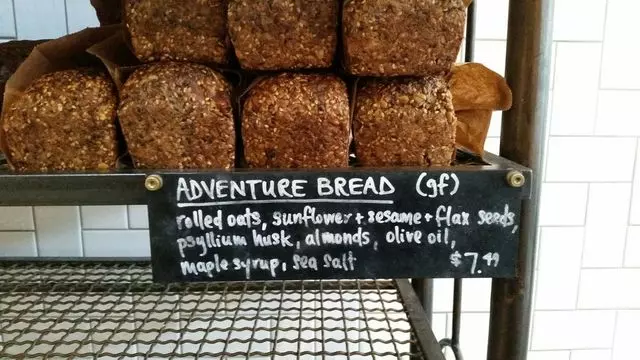 ADVENTURE BREAD (gf)
rolled oats, sunflower + sesame + flax seeds,
psyllium husk, almonds, olive oil,
maple syrup, sea salt $7.49